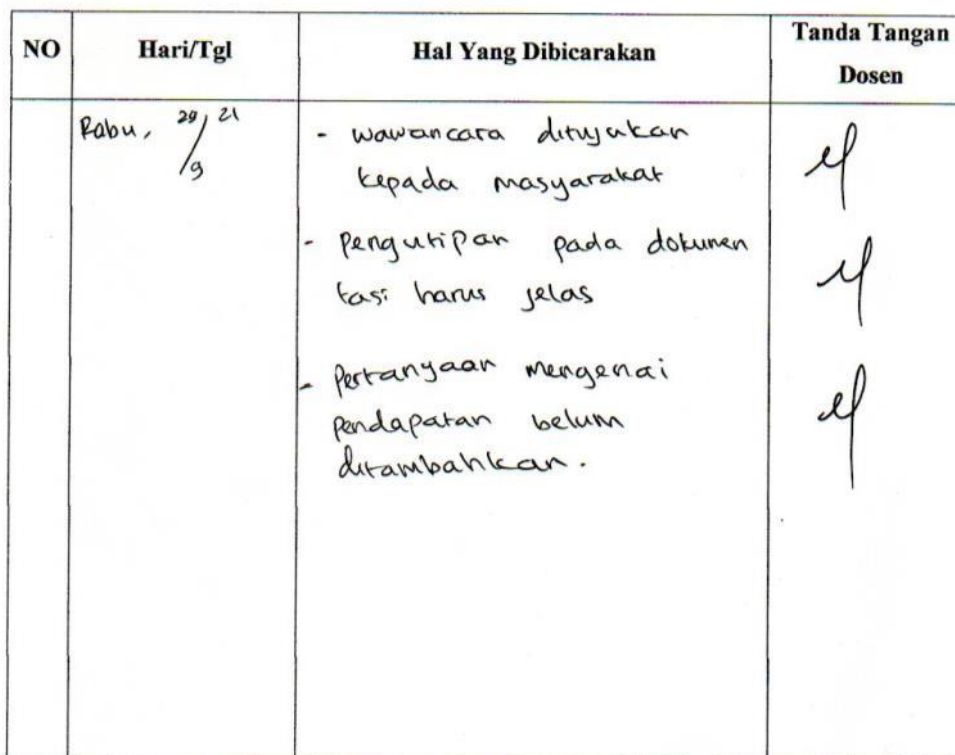 NO Hari/Tgl Hal Yang Dibicarakan Tanda Tangan
Dosen
Rabu, 29/9 21
- wawancara ditujukan
kepada masyarakat
- pengutipan pada dokumen
tasi harus jelas
- Pertanyaan mengenai
pendapatan belum
ditambahkan.